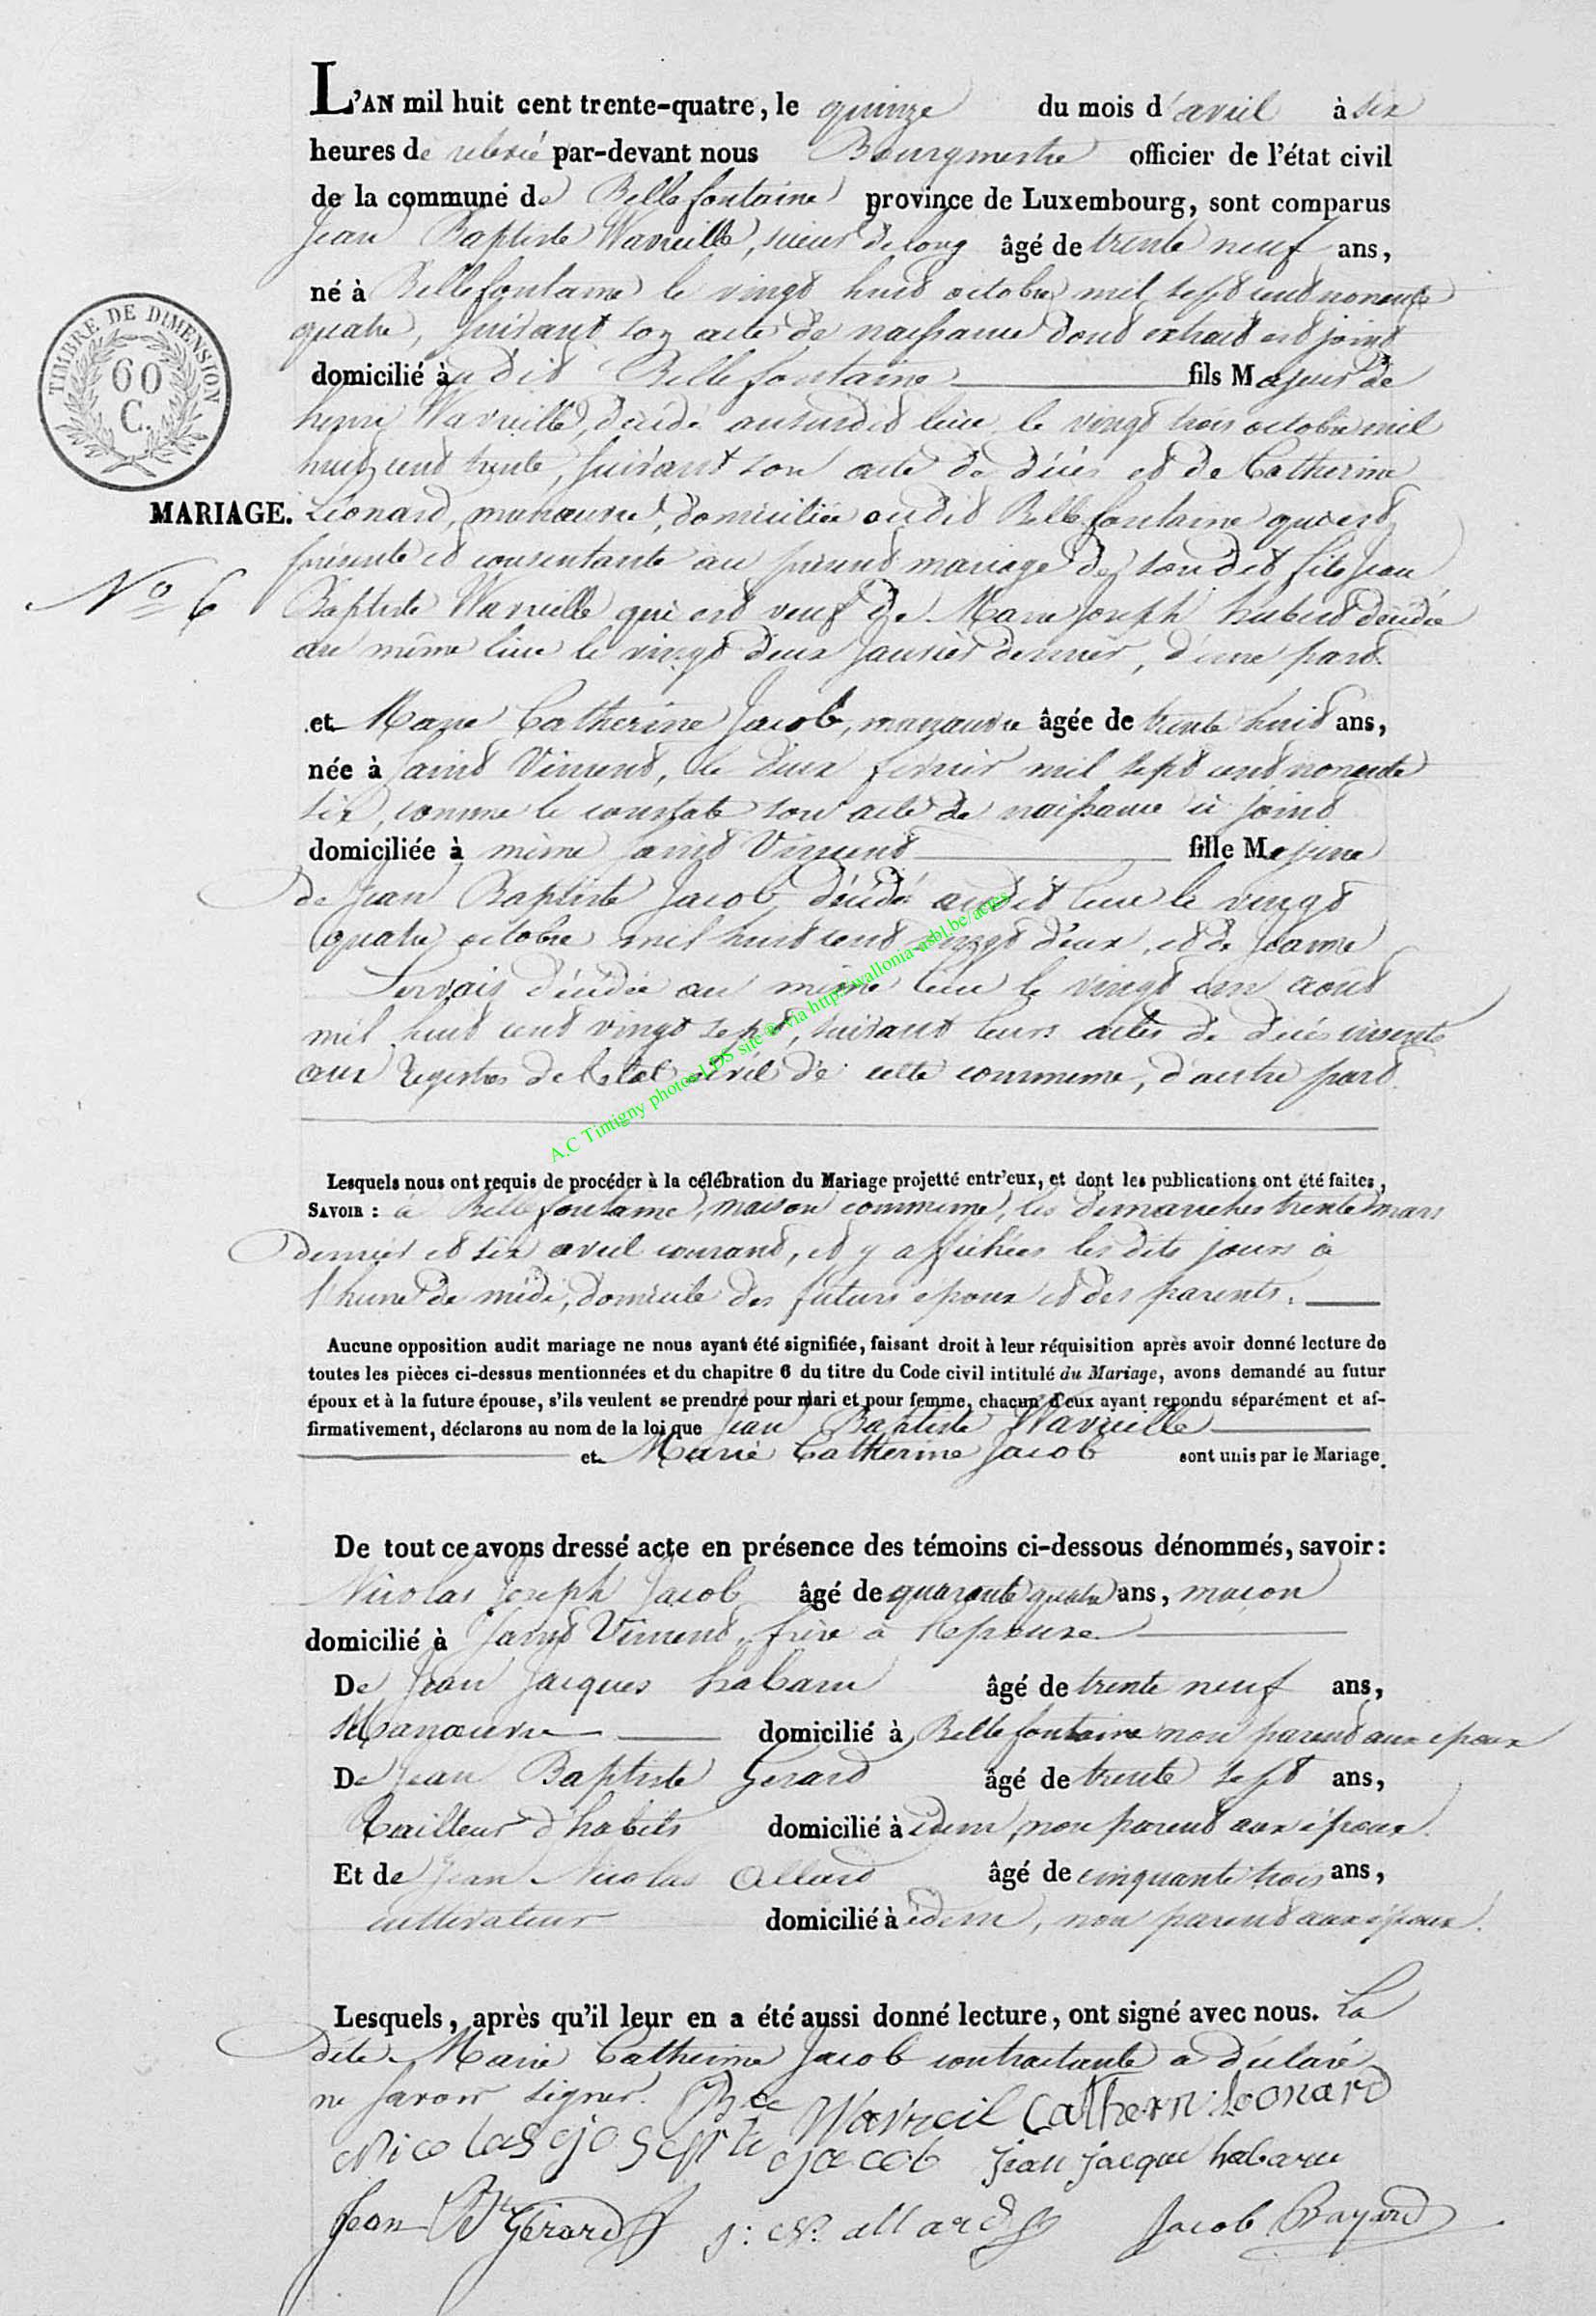 L'AN mil huit cent trente-quatre, le quinze du mois d'avril à six
heures de relevée par-devant nous Bourgmestre officier de l'état civil
de la commune de Bellefontaine province de Luxembourg, sont comparus
Jean Baptiste Wavreille, scieur de long âgé de trente neuf ans,
né à Bellefontaine le vingt huit octobre mil sept cent nonante
quatre, suivant son acte de naissance dont extrait est joint
domicilié audit Bellefontaine fils Majeur de
henri Wavreille, décédé au susdit lieu le vingt trois octobre mil
huit cent trente, suivant son acte de décès et de Catherine
TIMBRE DE DIMENSION
60
C.
MARIAGE.
Léonard, manœuvre, domiciliée audit Bellefontaine qui est
présente et consentante au présent mariage de sondit fils Jean
No 6
Baptiste Wavreille qui est veuf de Marie Joseph hubert décédée
au même lieu le vingt deux Janvier dernier, d'une part
et Marie Catherine Jacob, manœuvre âgée de trente huit ans,
née à Saint Vincent, le deux février mil sept cent nonante
six, comme le constate son acte de naissance ci joint
domiciliée à même Saint Vincent fille Majeure
de Jean Baptiste Jacob, décédé audit lieu le vingt
quatre octobre mil huit cent vingt deux, et de Jeanne
Servais décédée au même lieu le vingt un août
mil huit cent vingt sept, suivant leurs actes de décès inscrits
aux registres de l'état civil de cette commune, d'autre part
A.C Tintigny photos LDS site @ via http://wallonia-asbl.be/actes
Lesquels nous ont requis de procéder à la célébration du Mariage projetté entr'eux, et dont les publications ont été faites,
SAVOIR : à Bellefontaine, maison commune, les dimanches trente mars
dernier et six avril courant, et y affichées les dits jours à
l'heure de midi, domicile des futurs époux et des parents.
Aucune opposition audit mariage ne nous ayant été signifiée, faisant droit à leur réquisition après avoir donné lecture de
toutes les pièces ci-dessus mentionnées et du chapitre 6 du titre du Code civil intitulé du Mariage, avons demandé au futur
époux et à la future épouse, s'ils veulent se prendre pour mari et pour femme, chacun d'eux ayant repondu séparément et af-
firmativement, déclarons au nom de la loi que Jean Baptiste Wavreille
et Marie Catherine Jacob sont unis par le Mariage.
De tout ce avons dressé acte en présence des témoins ci-dessous dénommés, savoir:
Nicolas Joseph Jacob âgé de quarante quatre ans, maçon
domicilié à Saint Vincent, frère à l'épouse
De Jean Jacques habaru âgé de trente neuf ans,
Manœuvre domicilié à Bellefontaine non parent aux époux
De Jean Baptiste Gerard âgé de trente sept ans,
tailleur d'habits domicilié à idem, non parent aux époux.
Et de Jean Nicolas Allard âgé de cinquante trois ans,
cultivateur domicilié à idem, non parent aux époux.
Lesquels, après qu'il leur en a été aussi donné lecture, ont signé avec nous. La
dite Marie Catherine Jacob contractante a déclaré
ne savoir signer. Wavreil Cathern leonard
Nicolas joseph jacob jean jacque habaru
Jean Bte Gérard j: N: allard Jacob Bayard